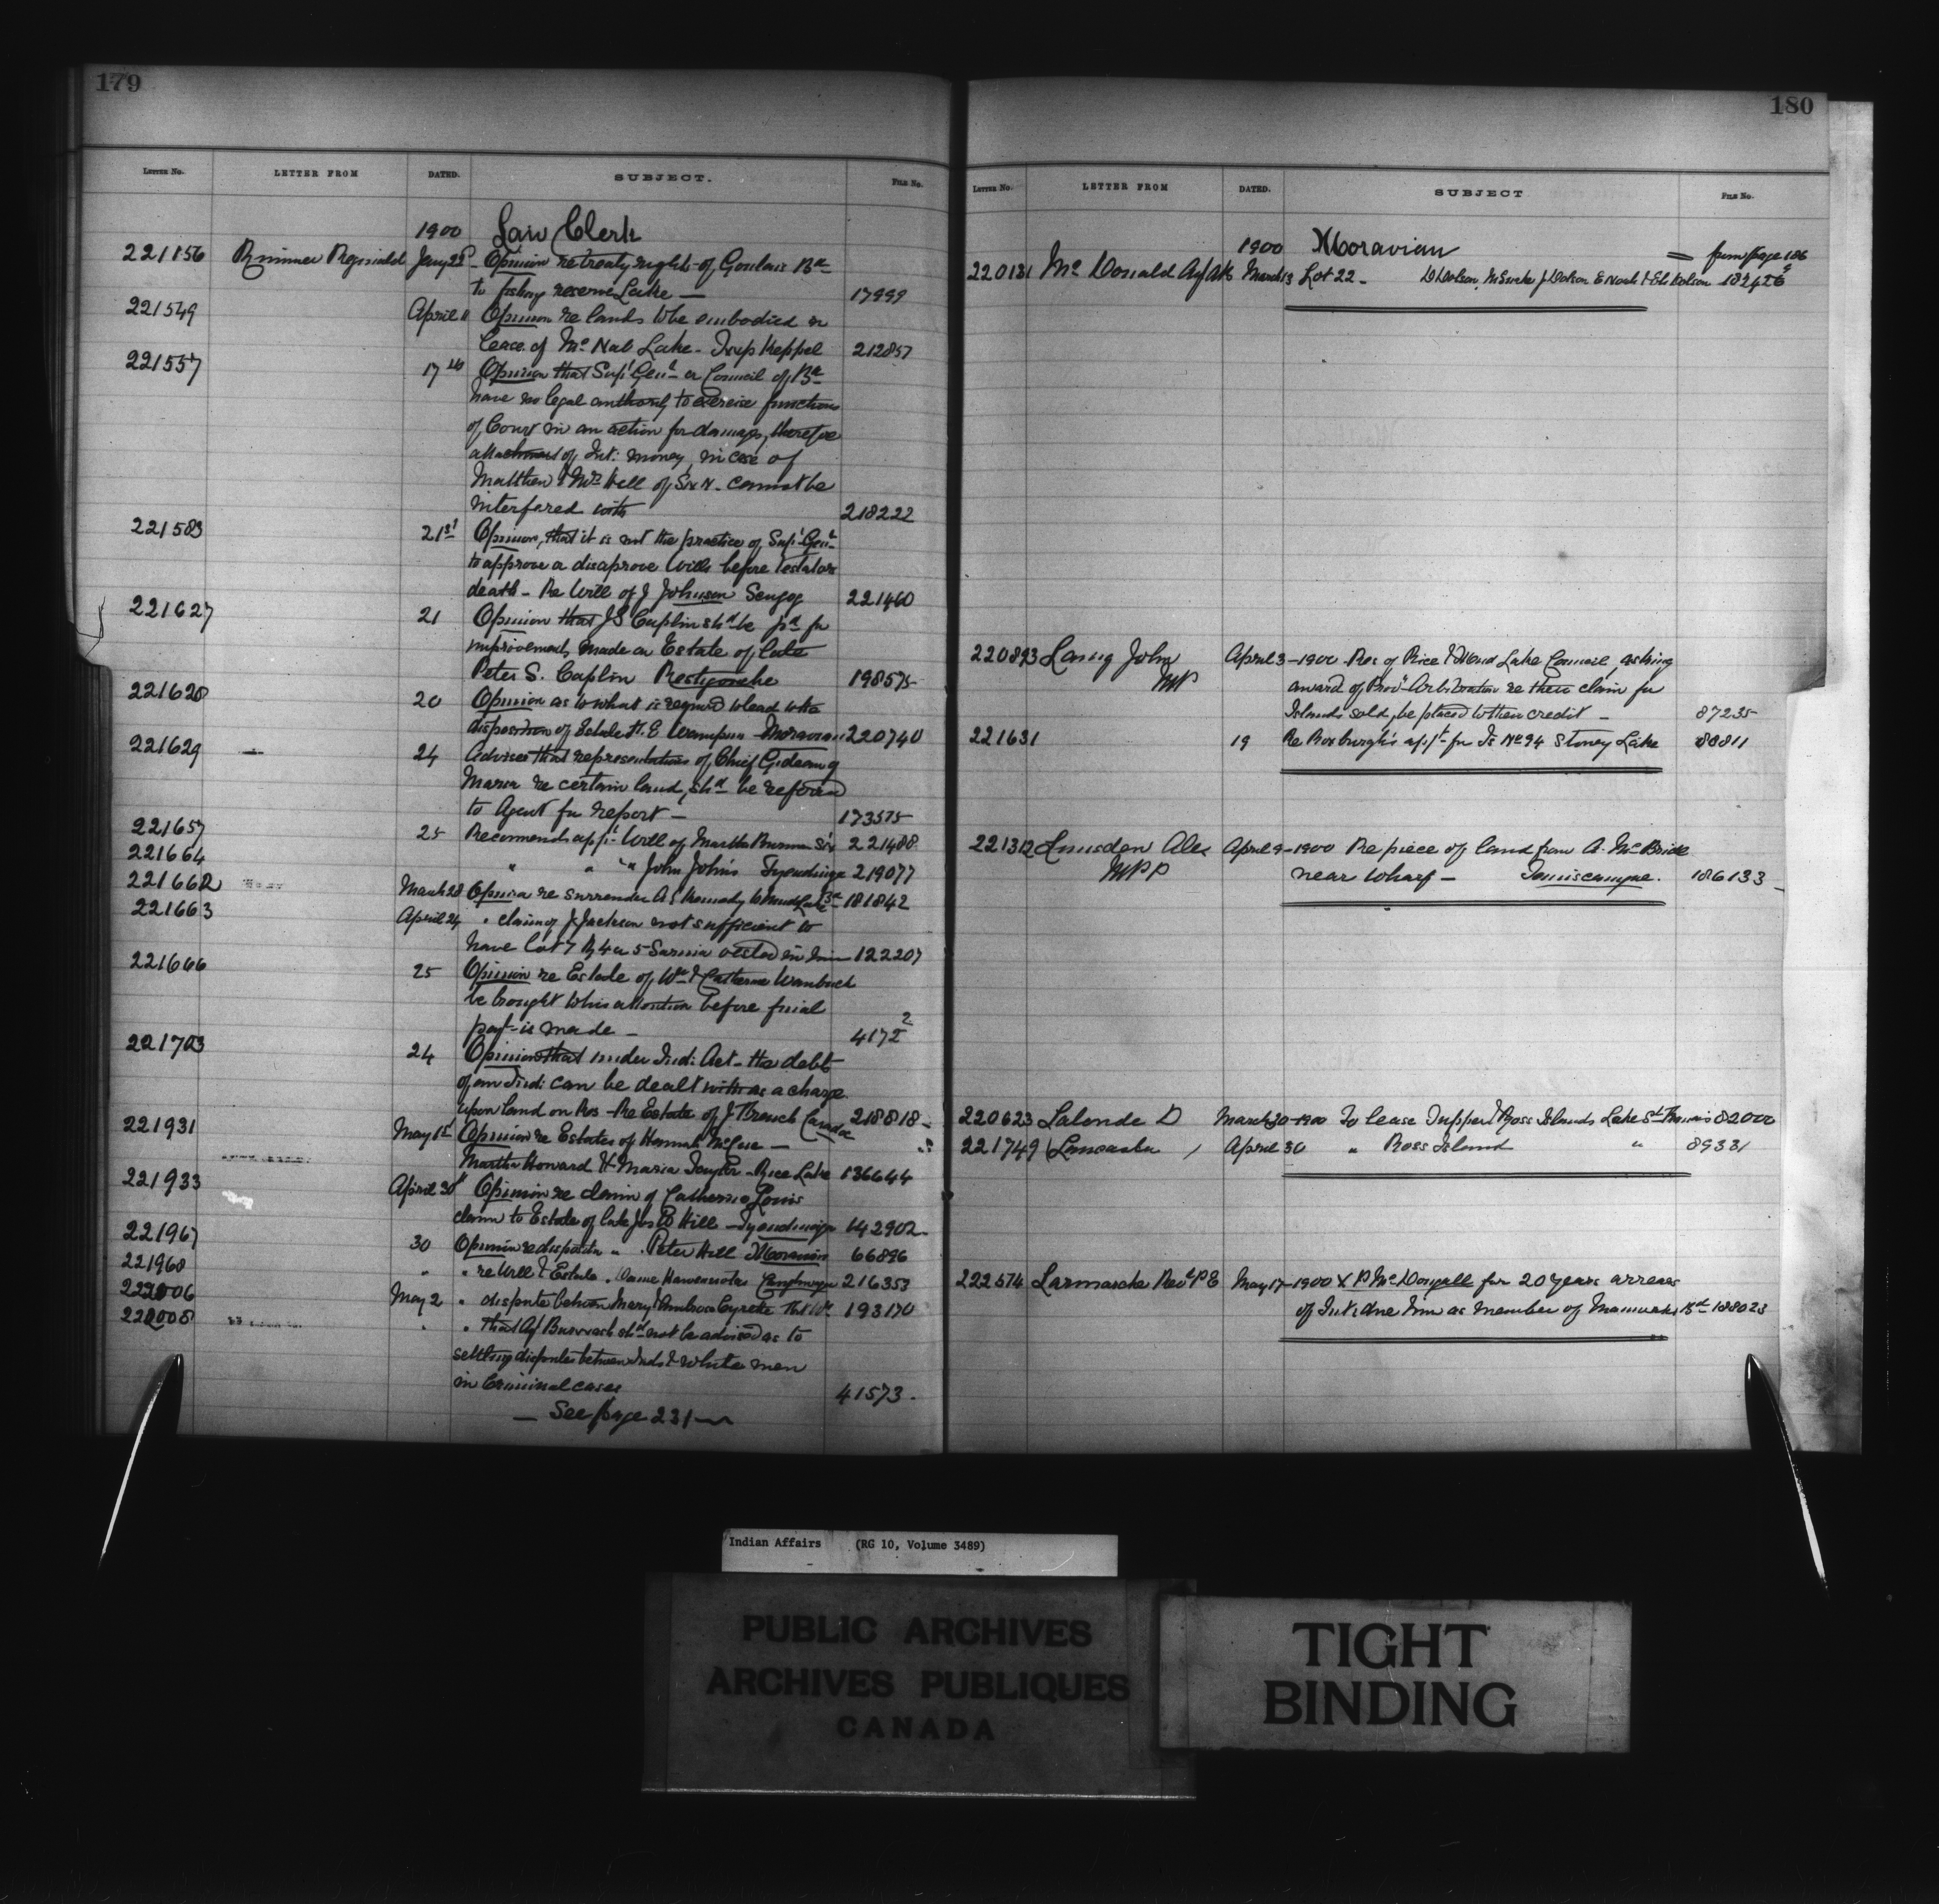 179
LETTER NO. LETTER FROM DATED. SUBJECT. FILE NO.
1900 Law Clerk
221156 Rimmer Reginald Jany 22d Opinion re treaty rights of Goulais Ba
to fishery reserve Lake — 17999
221549 April 11 Opinion re lands to be embodied in
lease of Mc Nab Lake - Twp Keppel 212857
221557 17th Opinion that Supt Genl or Council of Bd
have no legal authority to exercise functions
of Court in an action for damages, therefore
attachment of Int: money in case of
Matthew & Mrs Hill of Six N. cannot be
interfered with 218222
221583 21st Opinion, that it is not the practice of Supt Genl
to approve or disaprove Wills before testators
death - Re Will of J Johnson Scugog 221460
221627 21 Opinion that J S Caplin shd be pd for
improvements made on Estate of late
Peter S. Caplin Restigouche 198575
221628 20 Opinion as to what is required to lead to the
disposition of Estate H. E Wampum - Moravian 220740
221629 24 Advises that representations of Chief Gideon of
Maria re certain land, shd be referred
to Agent for report — 173575
221657 25 Recommends appl Will of Martha Burman Six 221488
221664 " " " John John's Tyendinaga 219077
221662 March 28 Opinion re surrender A S Kennedy to Mud Lake Bd 181842
221663 April 24 " claim of J. Jackson not sufficient to
have Lot 7 R 4 or 5 Sarnia vested in him 122207
221666 25 Opinion re Estate of Wm & Catherine
be brought to his attention before final
pay-is made — 4172 2
221703 24 Opinion that under Indi Act - the debt
of an Indi can be dealt with as a charge
upon land on Res - Re Estate of J. French Caradoc 218818 -
221931 May 1st Opinion re Estates of Hannah McCue —
Martha Howard & Maria - Rice Lake 136644
221933 April 30th Opinion re claim of Catherine Louis
claim to Estate of late Jos B Hill - Tyendinaga 142902 -
221967 30 Opinion re disposition " Peter Hill Moravian 66896
221968 " " re Will & Estate " 216353
222006 May 2 " dispute between Mary & Ambrose Cyrette Ft Wm 193170
222008 " " that Agt shd not be advised as to
settling disputes between Inds & white men
in Criminal cases 41573 -
— See page 231 —
180
LETTER NO. LETTER FROM DATED. SUBJECT FILE NO.
1900 Moravian = from page 186
220131 Mc Donald Agt AR March 13 Lot 22 - D Dolson, J Dolson E Noah & Eli Dolson
220893 Laing John April 3 - 1900 Res of Rice & Mud Lake Council asking
MP award of Provl Arbitration re their claim for
Islands sold, be placed to their credit — 87235
221631 19 Re Roxburgh's appt for Is No 94 Stoney Lake 88811
221312 Lumsden Alex April 9 - 1900 Re piece of land from A. Mc Bride
MPP near wharf — Temiscamque. 186133 -
220623 Lalonde D March 30 - 1900 To lease & Ross Islands Lake St Francis 82000
221749 Lancaster April 30 " Ross Island " 89331
222574 Larmarche Revd P E May 17 - 1900 X P McDougall for 20 years arrears
of Int: due him as member of Bd 188023
Indian Affairs (RG 10, Volume 3489)
PUBLIC ARCHIVES
ARCHIVES PUBLIQUES
CANADA
TIGHT
BINDING